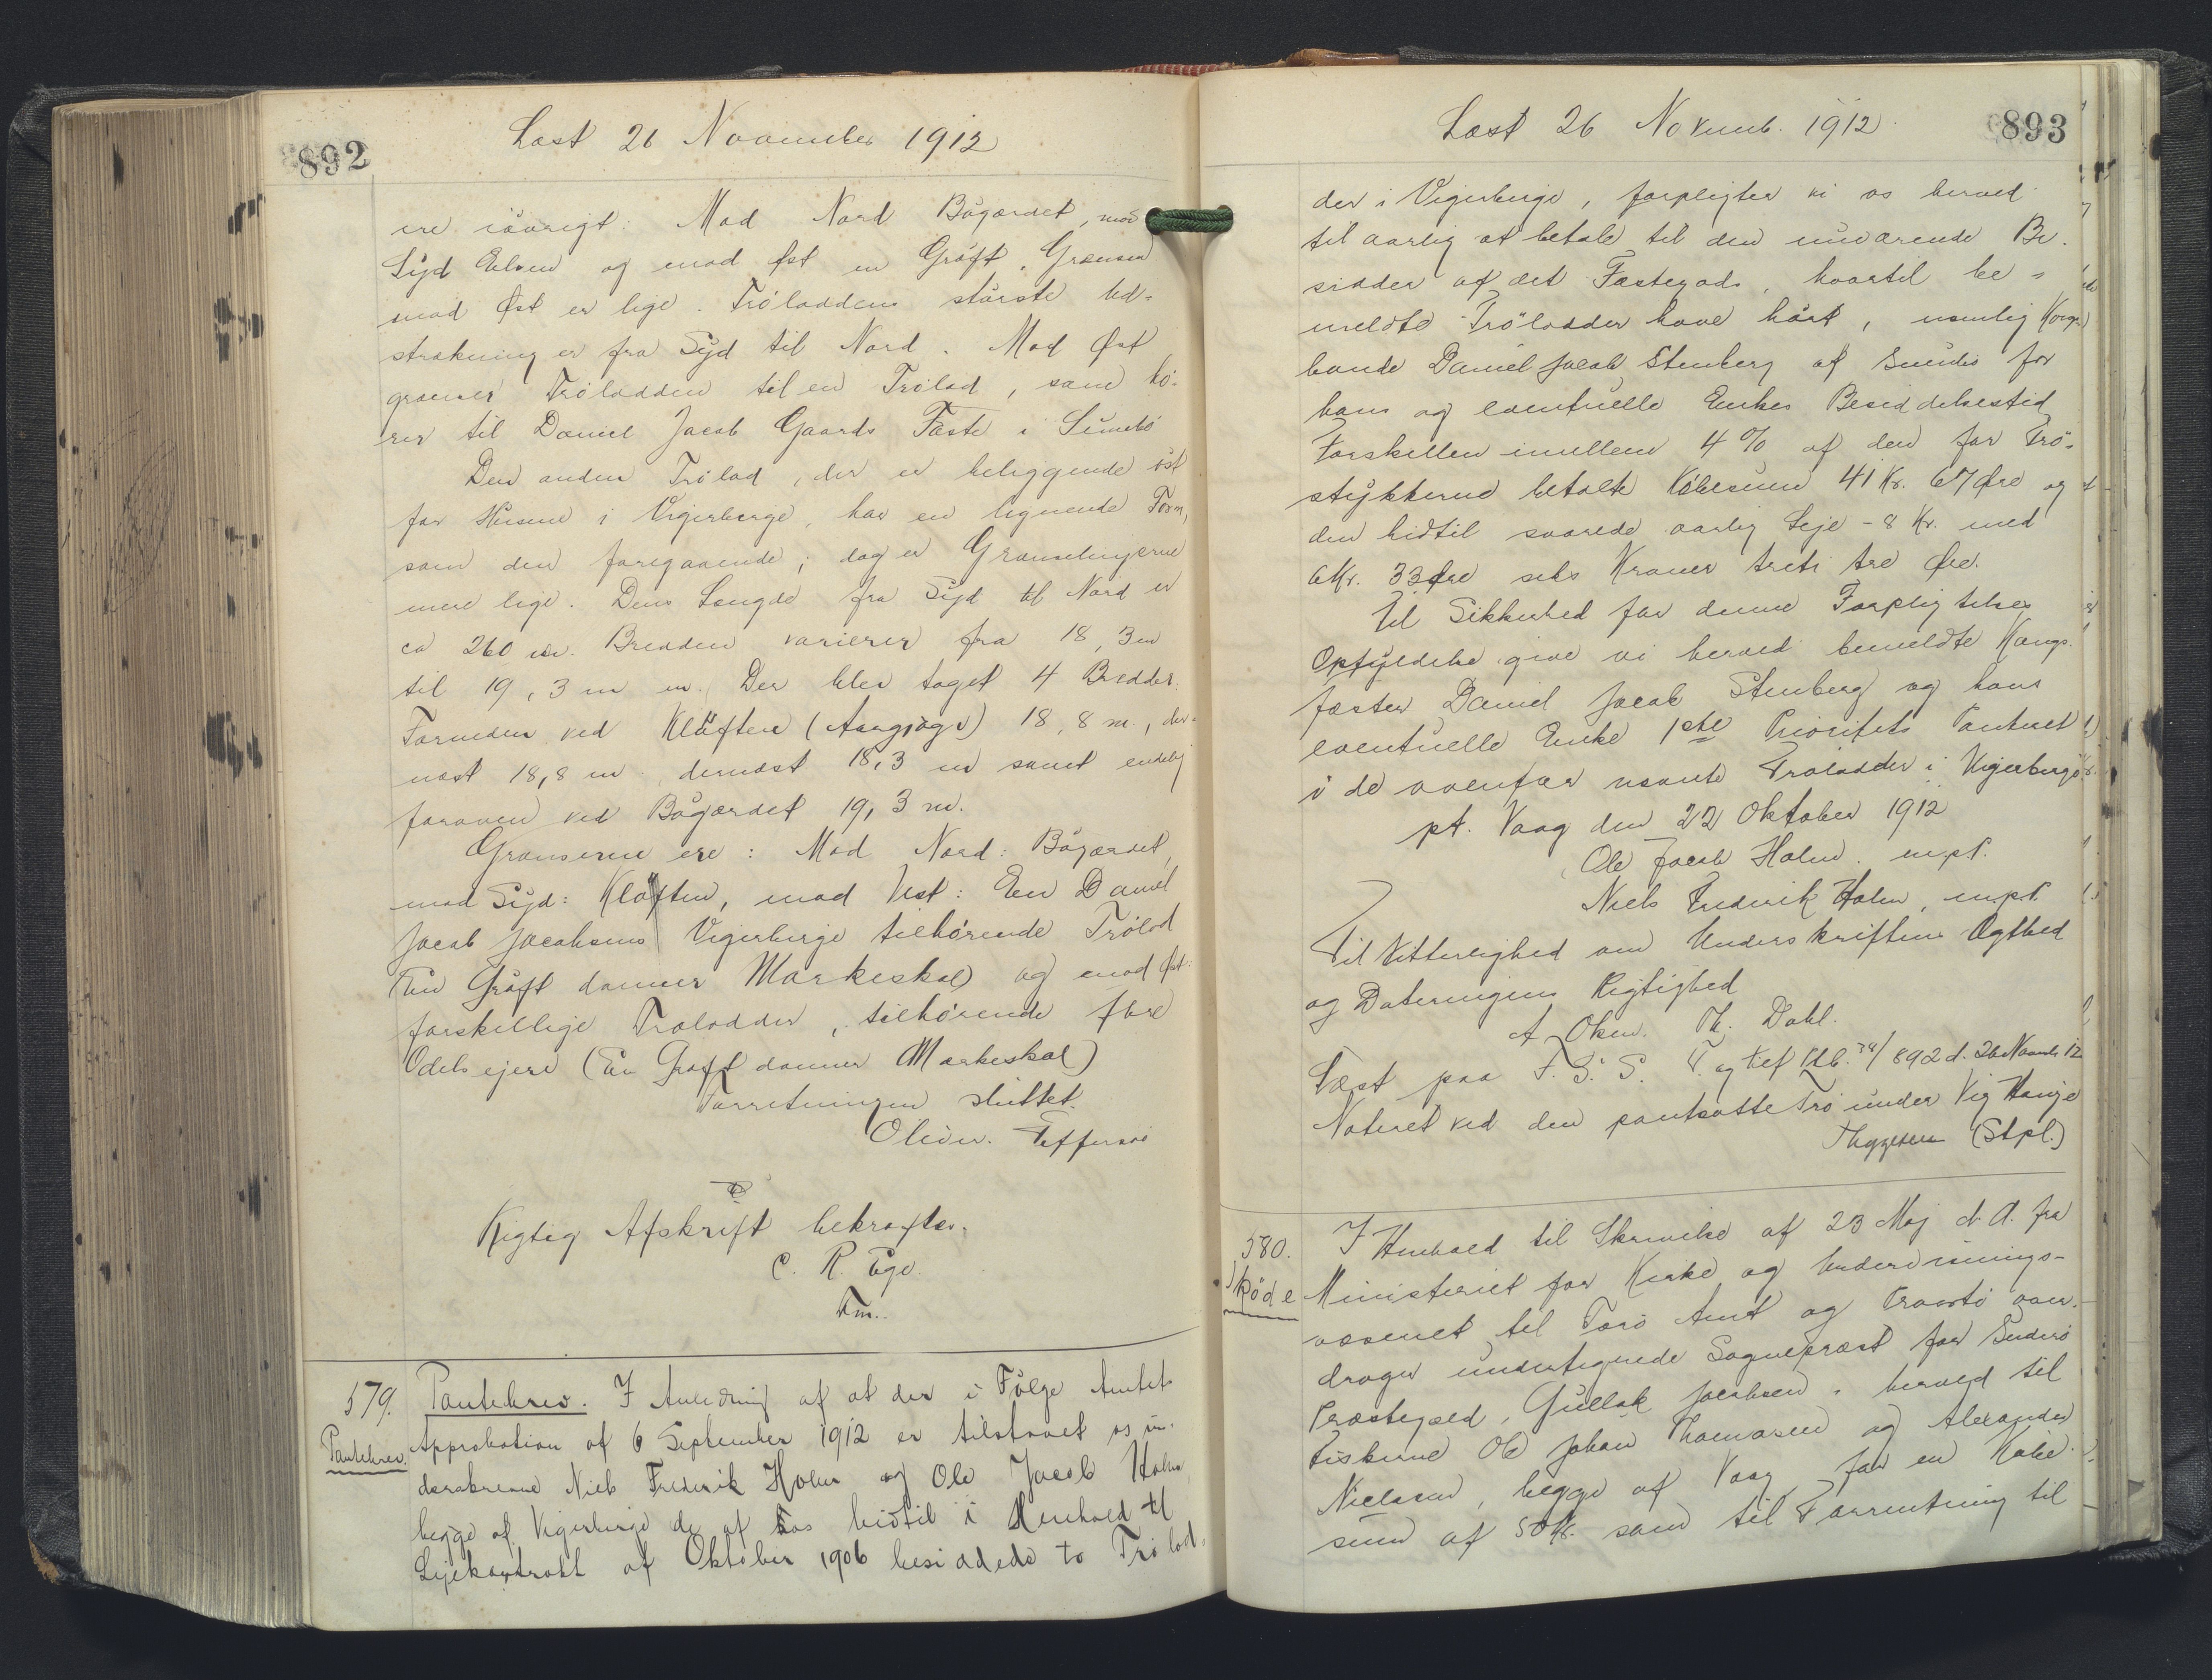 892
Læst 26 November 1912
ere iövrigt: Mod Nord Bögærdet, mod
Syd Elven og mod Øst en Gröft. Grænsen
mod Øst er lige. Trölodden störste Ud-
strækning er fra Syd til Nord. Mod Øst
grænser Trölodden til en Trölod, som hö-
rer til Daniel Jacob Gaards Fæste i Sumbö
Den anden Trölod, der er beliggende öst
for Husene i Vigerberge, har en lignende Form,
som den foregaaende; dog er Grænselinjerne
mere lige. Dens Længde fra Syd til Nord er
ca 260 m. Bredden varierer fra 18,3 m
til 19,3 m. Der blev taget 4 Bredder.
Forneden ved Klöften (Aargjogv) 18,8 m., der-
næst 18,8 m dernæst 18,3 m samt endelig
foroven ved Bögærdet 19,3 m.
Grænserne ere: Mod Nord: Bögærdet,
mod Syd: Klöften, mod Vest: En Daniel
Jacob Jacobsens Vigerberge tilhörende Trölod
(En Gröft danner Markeskel) og mod Øst:
forskellige Trölodder, tilhörende flere
Odelsejere (En Gröft danner Markeskel)
Forretningen sluttet.
Oliver. Effersøe
Rigtig Afskrift bekræftes.
C. R.
Fm.
579.
Pantebrev. I Anledning af at der i Fölge Amtets
Pantebrev.
Approbation af 6 September 1912 er tilstaaet os un-
derskrevne Niels Frederik Holm og Ole Jacob Holm,
begge af Vigerberge de af os hidtil i Henhold til
Lejekontrakt af Oktober 1906 besiddede to Trölod-
893
Læst 26 Novemb. 1912
der i Vigerberge, forpligter vi os herved
til aarlig at betale til den nuværende Be-
sidder af det Fæstegods, hvortil be-
meldte Trölodder have hört, nemlig Kongs-
bonde Daniel Jacob Stenberg af Sumbö for
hans og eventuelle Enkes Besiddelsestid
Forskellen imellem 4 % af den for Trö-
stykkerne betalte Köbesum 41 Kr. 67 Øre og
den hidtil svarede aarlig Leje - 8 Kr. med
6 Kr. 33 Øre seks Kroner treti tre Øre.
Til Sikkerhed for denne Forpligtelses
Opfyldelse give vi herved bemeldte Kongs-
fæster Daniel Jacob Stenberg og hans
eventuelle Enke 1ste Prioritets Panteret
i de ovenfor nævnte Trölodder i Vigerberge.
pt. Vaag den 22 Oktober 1912
Ole Jacob Holm. m.p.
Niels Frederik Holm, m.p.
Til Vitterlighed om Underskriftens Ægthed
og Dateringens Rigtighed
A. Th. Dahl.
Læst paa F. S. S. T. og 892 d. 26 Novemb 12
Noteret ved den pantsatte Trö under Vig Hauge
Thygesen (Stpl.)
580.
Sköde
I Henhold til Skrivelse af 23 Maj d. A. fra
Ministeriet for Kirke og Undervisnings-
væsenet til Færö Amt og Provsti over-
drager undertegnede Sognepræst for Suderö
Præstegæld, Gullak Jacobsen, herved til
Fiskerne Ole Johan Thomasen og Alexander
Nielsen, begge af Vaag, for en Købe-
sum af 50 Kr. som til Forrentning til